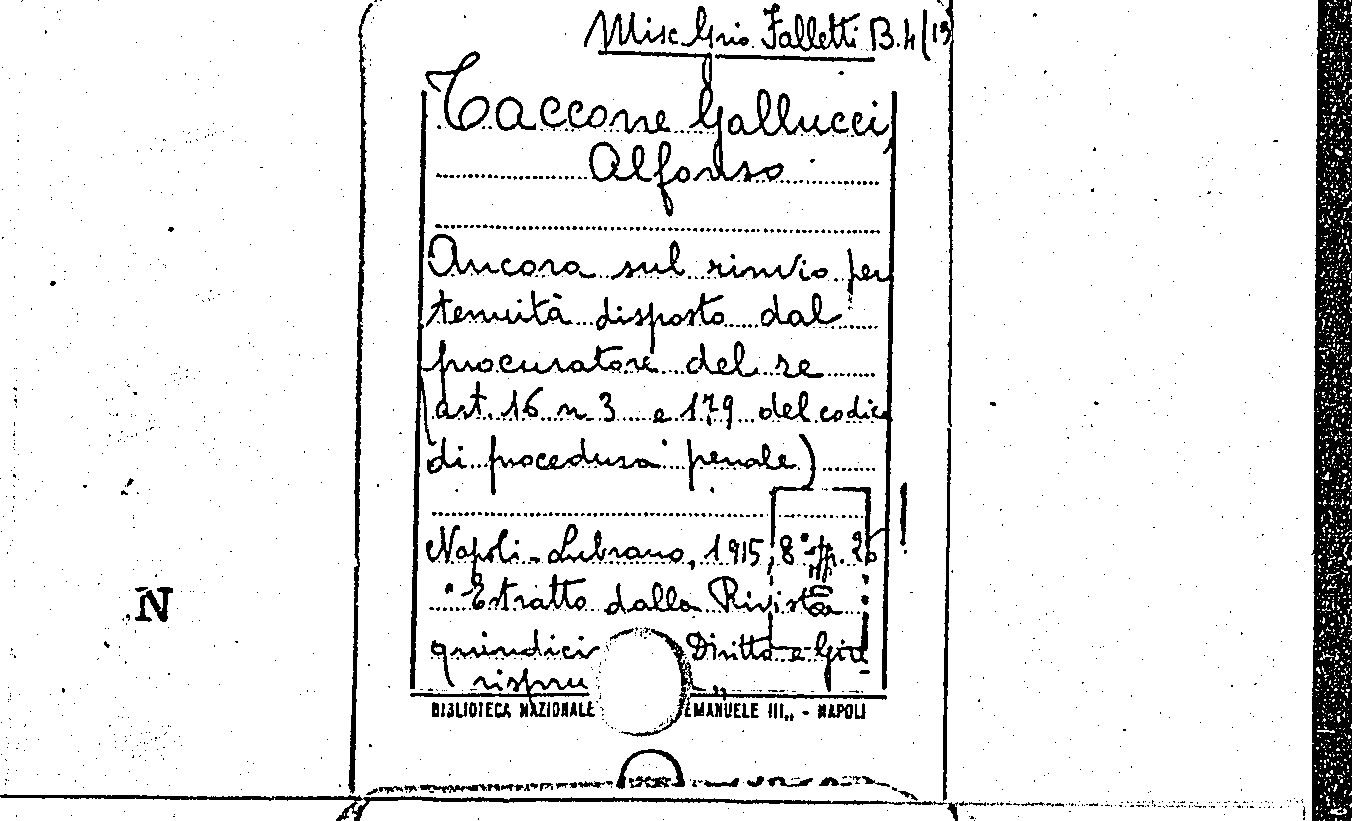 Misc Grio Falletti B.4/13
Taccone Gallucci,
Alfonso
Ancora sul rinvio per
tenuità disposto dal
procuratore del re
(art. 16 n 3 e 179 del codice
di procedura penale)
Napoli - Lubrano, 1915, 8° pp.
"Estratto dalla Rivista
quindici Diritto e Giu
rispru „
BIBLIOTECA NAZIONALE EMANUELE III„ - NAPOLI
N